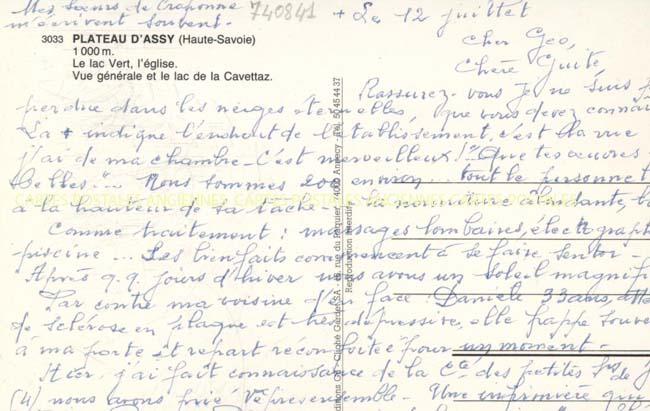 Mes Sœurs de Craponne
m'écrivent souvent.
740841
+ Le 12 juillet
3033 PLATEAU D'ASSY (Haute-Savoie)
1 000 m.
Le lac Vert, l'église.
Vue générale et le lac de la Cavettaz.
Cher Geo,
Chère Guite,
Rassurez-vous je ne suis
perdue dans les neiges éternelles, que vous devez
La + indique l'endroit de l'établissement, c'est la vue
j'ai de ma chambre - C'est merveilleux ! "Que tes œuvres
belles"... Nous sommes 200 environ... tout le personnel
CARTES POSTALES ANCIENNES
à la hauteur de sa tâche - la nourriture abondante,
Comme traitement : massages lombaires,
piscine... Les bienfaits commencent à se faire sentir -
Après q.q. jours d'hiver nous avons un soleil
Par contre ma voisine d'en face : Danièle 33 ans,
de sclérose en plaque est très dépressive, elle frappe
à ma porte et repart réconfortée pour un moment -
Hier, j'ai fait connaissance de la Cté des petites Srs de
(4) nous avons prié Vêpres ensemble - Une
Reproduction interdite